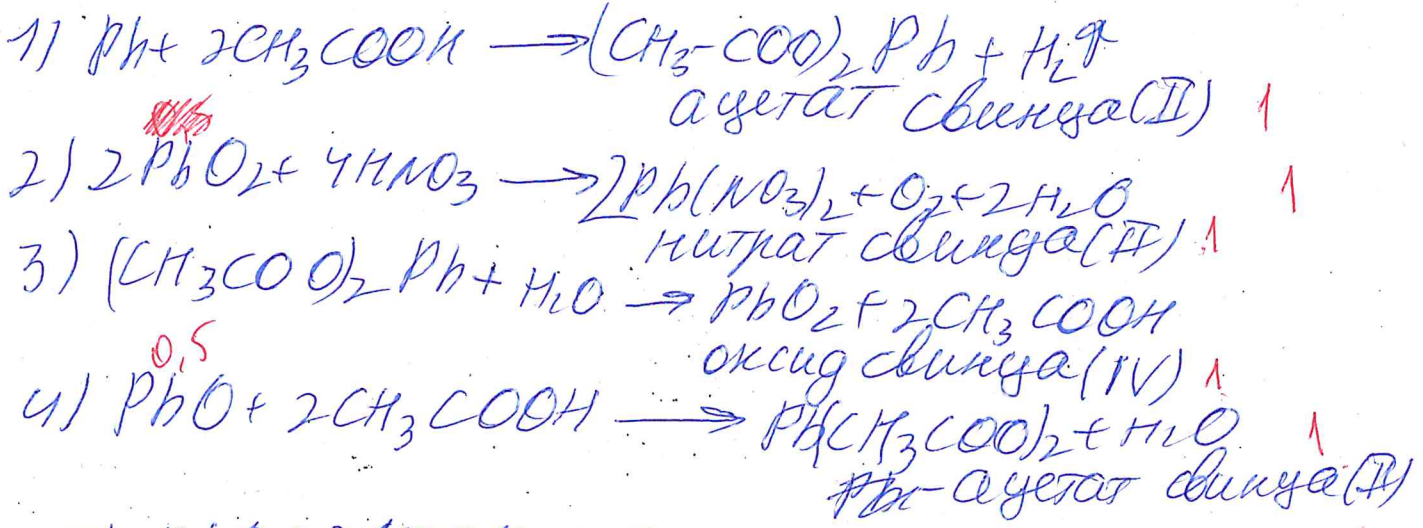 1) Pb + 2CH₃COOH → (CH₃-COO)₂Pb + H₂↑
ацетат свинца(II) 1
2) 2PbO₂ + 4HNO₃ → 2Pb(NO₃)₂ + O₂ + 2H₂O 1
нитрат свинца(II) 1
3) (CH₃COO)₂Pb + H₂O → PbO₂ + 2CH₃COOH
0,5 оксид свинца(IV) 1
4) PbO + 2CH₃COOH → Pb(CH₃COO)₂ + H₂O 1
- ацетат свинца(II)